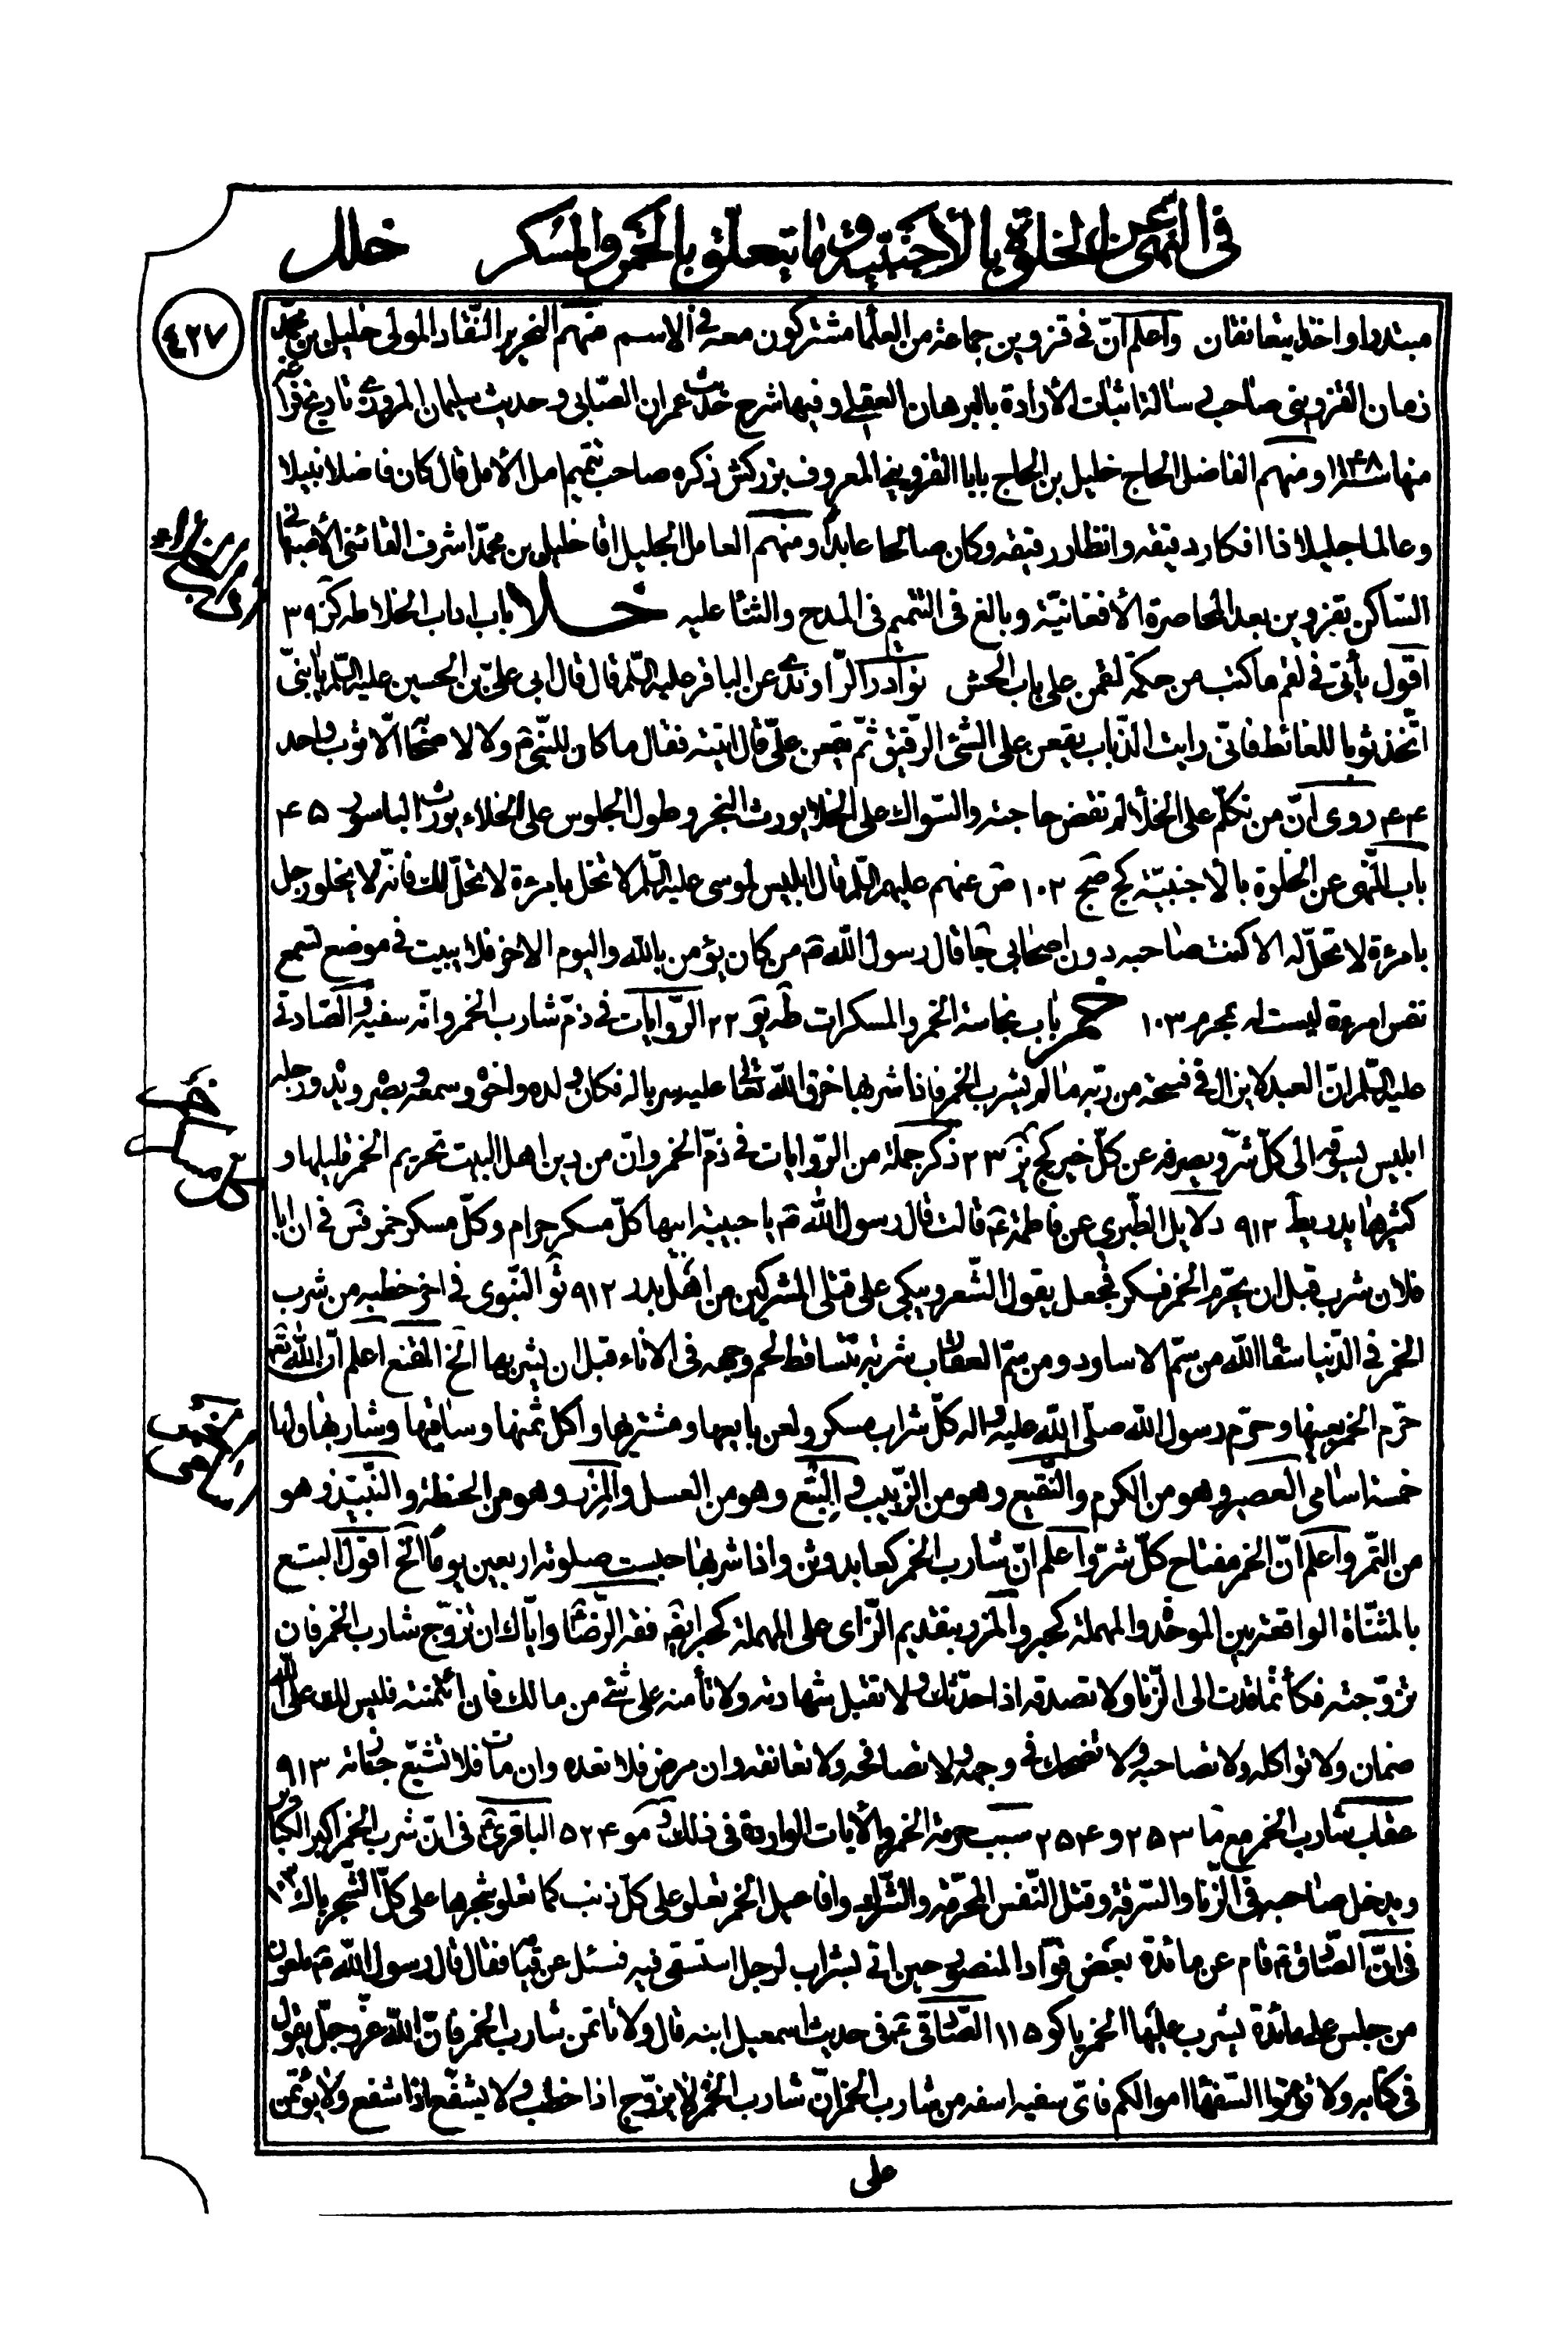 في النهي عن الخلوة بالأجنبية وما يتعلق بالخمر والمسكر خلل
٤٢٧
مبتدرا واخذا يتعانقان واعلم انّ في قزوين جماعة من العلما مشتركون معه في الاسم منهم النحرير النّقاد المولى خليل بن محمّد
زمان القزويني صاحب رسالة اثبات الأرادة بالبرهان العقلي وفيها شرح حديث عمران الصّابي وحديث سليمان المروزي تاريخ فراغه
منها ١١٤٨ ومنهم الفاضل الحاج خليل بن الحاج بابا القزويني المعروف بزركش ذكره صاحب تتميم امل الأمل قال كان فاضلا نبيلا
وعالما جليلا ذا افكار دقيقه وانظار رقيقه وكان صالحا عابدا ومنهم العامل الجليل اقا خليل بن محمّد اشرف القائني الأصبهاني
السّاكن بقزوين بعد المحاصرة الأفغانيّة وبالغ في التتميم في المدح والثنا عليه خلا باب اداب الخلا طه كز ٣٩
اقول يأتى في لقم ما كتب من حكمة لقمن على باب الحش نوادر الرّاوندي عن الباقر عليه السّلم قال قال ابي عليّ بن الحسين عليه السّلم يا بنيّ
اتّخذ ثوبا للغائط فانّي رايت الذّباب يقعن على الشئ الرّقيق ثمّ يقعن عليّ قال اتيته فقال ما كان للنّبي ص ولا لاصحابه الّا ثوب واحد
٤٤ روى انّ من تكلّم على الخلأ لم تقض حاجته والسّواك على الخلا يورث البخر وطول الجلوس على الخلاء يورث الباسور ٤٥
باب النّهى عن الخلوة بالأجنبيّة كج صج ١٠٢ ص عنهم عليهم السّلم قال ابليس لموسى عليه السّلم لا تخل بامرءة لا تحلّ لك فانّه لا يخلو رجل
بامرءة لا تحلّ له الا كنت صاحبه دون اصحابي جا قال رسول اللّه ص من كان يؤمن باللّه واليوم الاخر فلا يبيت في موضع تسمع
نفس امرءة ليست له بمحرم ١٠٣ خمر باب نجاسة الخمر والمسكرات طه يو ٢٢ الرّوايات في ذمّ شارب الخمر وانّه سفيه والصّادق
عليه السّلم انّ العبد لا يزال في فسحة من ربّه ما لم يشرب الخمر فاذا شربها خرق اللّه تعالى عليه سرباله فكان ولده واخوه وسمعه وبصره ويده ورجله
ابليس يسوقه الى كلّ شرّ ويصرفه عن كلّ خير كج نز ٢٣ ذكر جملة من الرّوايات في ذمّ الخمر وانّ من دين اهل البيت تحريم الخمر قليلها و
كثيرها يد ريط ٩١٢ دلايل الطّبري عن فاطمة ع قالت قال رسول اللّه ص يا حبيبة ابيها كلّ مسكر حرام وكلّ مسكر خمر فس في ان ابا
فلان شرب قبل ان يحرّم الخمر فسكر فجعل يقول الشّعر ويبكي على قتلى المشركين من اهل بدر ٩١٢ ثو النّبوى في اخر خطبه من شرب
الخمر في الدّنيا سقاه اللّه من سمّ الاساود ومن سمّ العقارب شربة يتساقط لحم وجهه فى الاناء قبل ان يشربها الخ المقنع اعلم انّ اللّه تعالى
حرّم الخمر بعينها وحرّم رسول اللّه صلّى اللّه عليه واله كلّ شراب مسكر ولعن بايعها ومشتريها واكل ثمنها وساقيها وشاربها ولها
خمسة اسامى العصير وهو من الكرم والنّقيع وهو من الزّبيب والبتع وهو من العسل والمزر وهو من الحنطة والنّبيذ وهو
من التّمر واعلم انّ الخمر مفتاح كلّ شرّ واعلم انّ شارب الخمر كعابد وثن واذا شربها حبست صلوته اربعين يوما الخ اقول البتع
بالمثنّاة الواقعة بين الموحّدة والمهملة كحبر والمزر بتقديم الزّاى على المهملة كحبر ايضا فقه الرّضا وايّاك ان تزوّج شارب الخمر فان
تزوّجته فكأنّما قدت الى الزّنا ولا تصدقه اذا حدّثك ولا تقبل شهادته ولا تأمنه على شئ من مالك فان ائتمنته فليس لك على اللّه
ضمان ولا تواكله ولا تصاحبه ولا تضحك في وجهه ولا تصافحه ولا تعانقه وان مرض فلا تعده وان مات فلا تشيّع جنازته ٩١٣
عقاب شارب الخمر مع ما ٢٥٣ و ٢٥٤ سبب حرمة الخمر والأيات الواردة فى ذلك و مو ٥٢٤ الباقري ع فى انّ شرب الخمر اكبر الكبائر
ويدخل صاحبه في الزّنا والسّرقة وقتل النّفس المحرّمة والشّرك وافاعيل الخمر تعلو على كلّ ذنب كما تعلو شجرها على كلّ الشّجر يا ك ١٠٣
في انّ الصّادق ع قام عن مائدة بعض قوّاد المنصور حين اتى بشراب لرجل استسقى فيه فسئل عن قيامه فقال قال رسول اللّه ص ملعون
من جلس على مائدة يشرب عليها الخمر يا كو ١١٥ الصّادقي ع في حديث اسمعيل ابنه قال ولا تأتمن شارب الخمر فانّ اللّه عزّ وجلّ يقول
في كتابه ولا تؤتوا السّفهاء اموالكم فاىّ سفيه اسفه من شارب الخمر انّ شارب الخمر لا يزوّج اذا خطب ولا يشفّع اذا شفع ولا يؤتمن
على